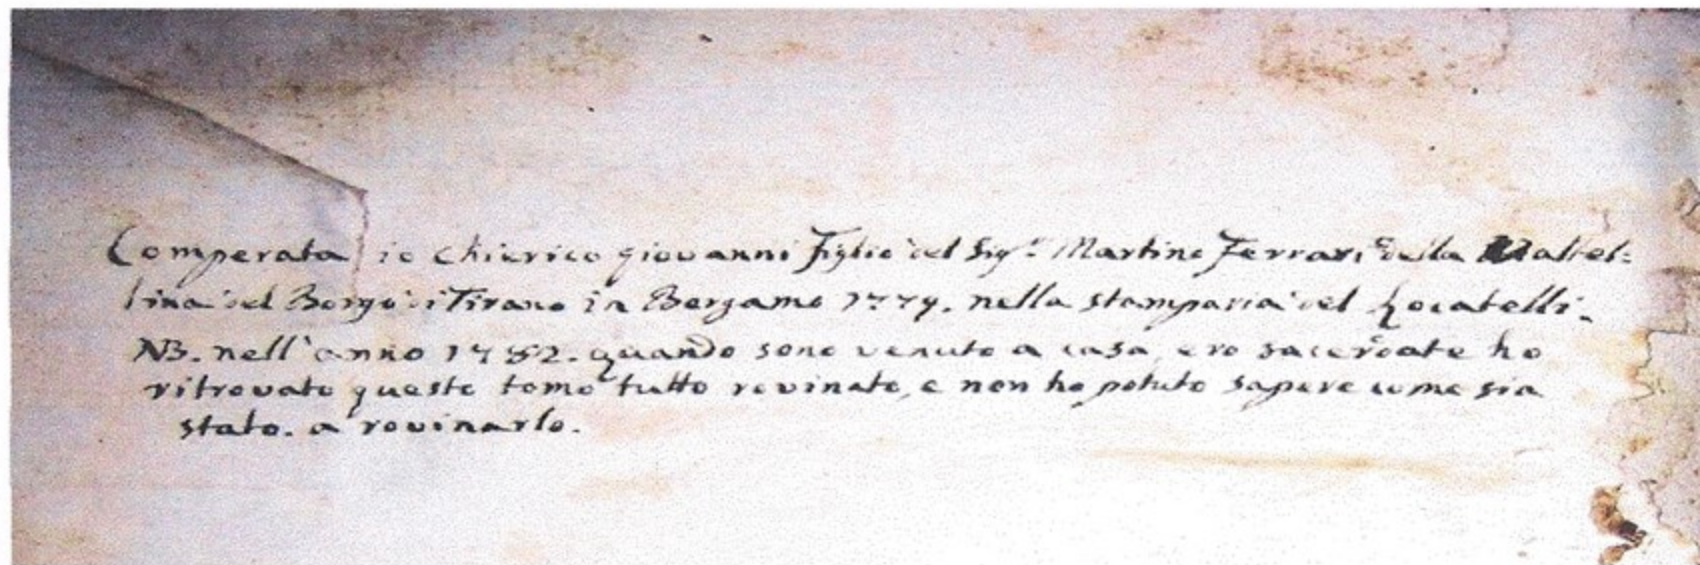 Comperata io Chierico giovanni Figlio del Sig.r Martino Ferrari della Valtel=
lina del Borgo di Tirano in Bergamo 1779. nella stamparia del Locatelli.
NB. nell'anno 1782. quando sono venuto a casa, ero sacerdote ho
ritrovato questo tomo tutto rovinato, e non ho potuto sapere come sia
stato. a rovinarlo.